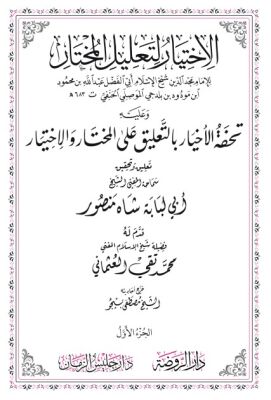 الاختيار لتعليل المختار
للإمام مجد الدين شيخ الإسلام أبي الفضل عبد الله بن محمود
ابن مودود بن بلدجي الموصلي الحنفي ت ٦٨٣ هـ
وعليه
تحفة الأخيار بالتعليق على المختار والاختيار
تعليق وتحقيق
سماحة المفتي الشيخ
أبي لبابة شاه منصور
قدم له
فضيلة شيخ الإسلام المفتي
محمد تقي العثماني
خرج أحاديثه
الشيخ مصطفى
الجزء الأول
دار الروضة
دار جليس الزمان